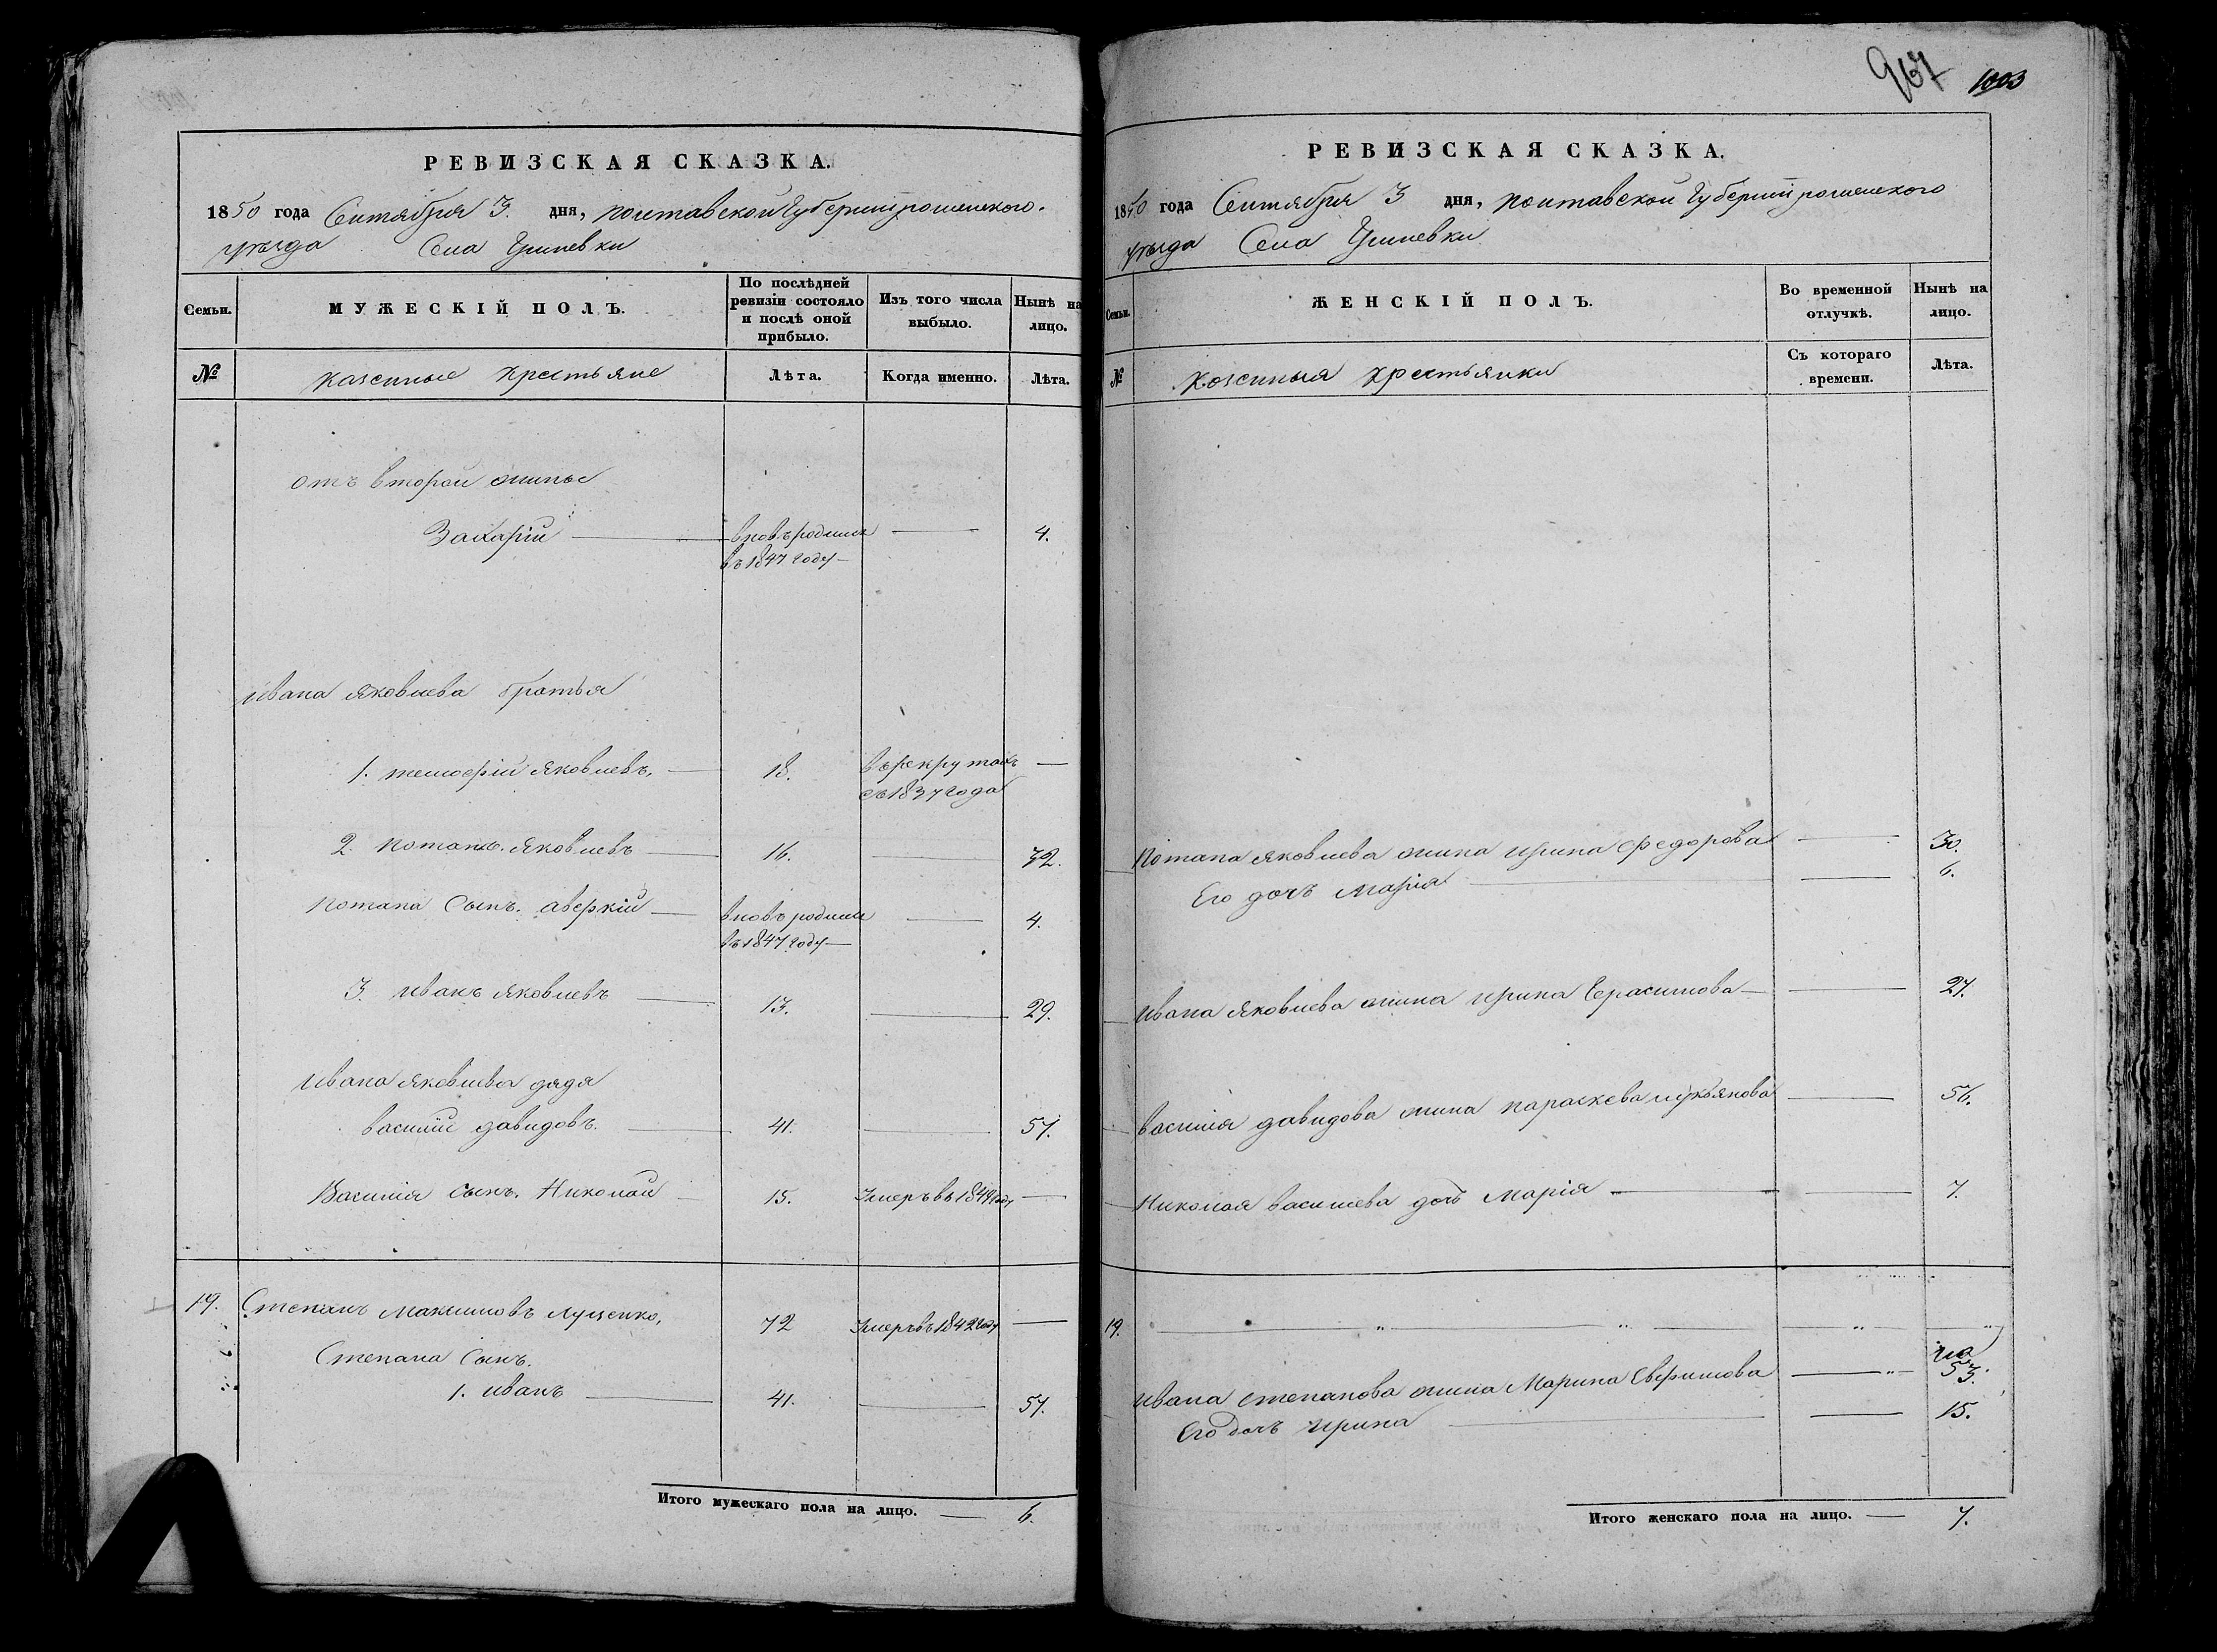 РЕВИЗСКАЯ СКАЗКА.
1850 года Сентября 3. дня, полтавской Губернии роменского.
уѣзда Села
Семьи.
МУЖЕСКІЙ ПОЛЪ.
По послѣдней ревизіи состояло и послѣ оной прибыло.
Изъ того числа выбыло.
Нынѣ на лицо.
№
казенные крестьяне
Лѣта.
Когда именно.
Лѣта.
отъ второй жены
Захарій вновь родился 4.
въ 1847 году
Ивана Яковлева братья
1. телесфрій Яковлевъ, 18. въ рекрутахъ
съ 1837 года
2. потапъ. Яковлевъ 16. 32.
потапа Сынъ. аверкій вновь родился 4.
въ 1847 году
3. иванъ Яковлевъ 13. 29.
Ивана Яковлева дядя
василий давидовъ. 41. 57.
Василія сынъ. Николай 15. Умеръ въ 1849 году
19. Степанъ Максимовъ Луценко, 72 Умеръ въ 1842 году
Степана Сынъ.
1. иванъ 41. 57.
Итого мужескаго пола на лицо. 6.
967 1003
РЕВИЗСКАЯ СКАЗКА.
1850 года Сентября 3 дня, полтавской Губернии роменского
уѣзда Села
Семьи.
ЖЕНСКІЙ ПОЛЪ.
Во временной отлучкѣ.
Нынѣ на лицо.
№
Казенныя крестьянки
Съ котораго времени.
Лѣта.
Потапа Яковлева жена Ирина Федорова 30.
Его дочь Марія 6.
Ивана Яковлева жена Ирина Герасимова 27.
василія давидова жена параскева лукьянова 56.
Николая василиева дочь Марія 7.
19.
Ивана степанова жена Марина Ефримова 53.
Его дочь Ирина 15.
Итого женскаго пола на лицо. 7.